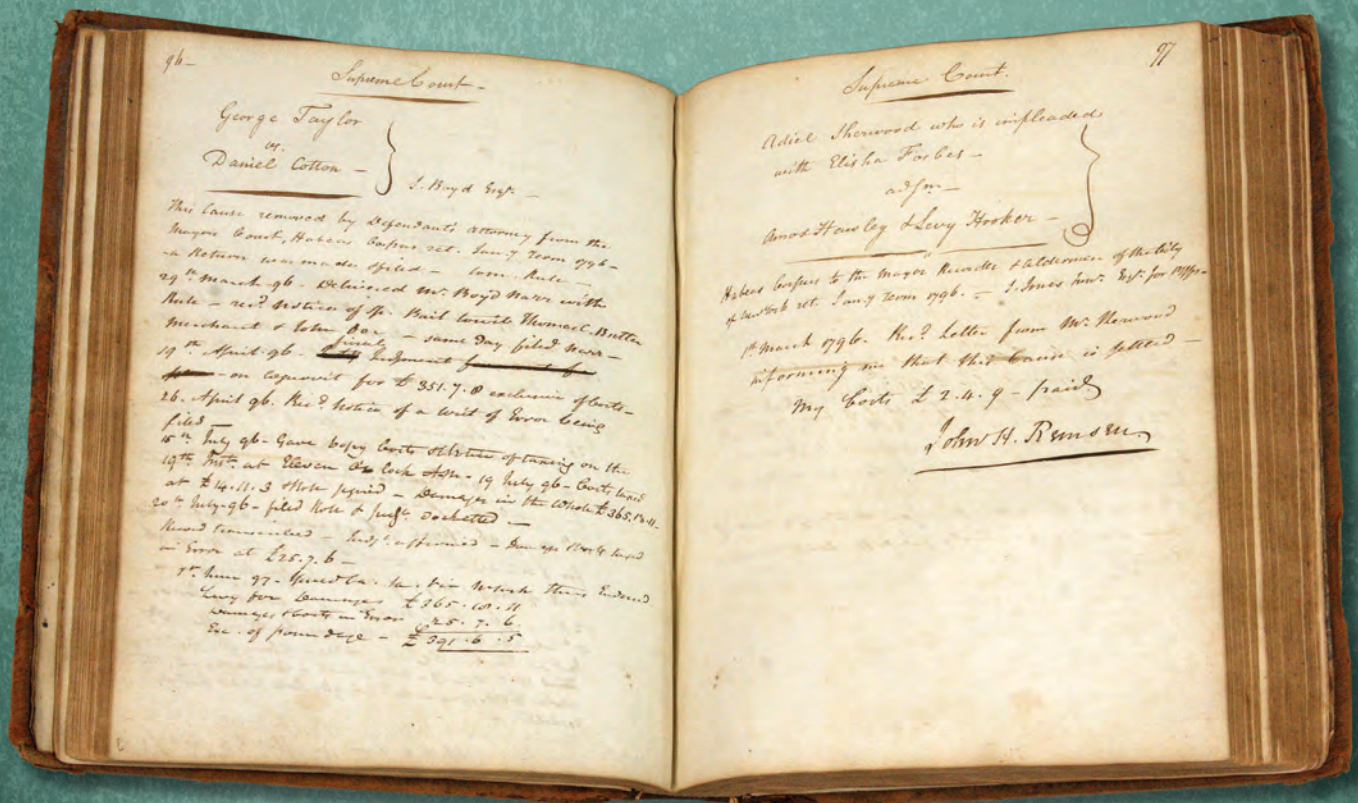 96-
Supreme Court-
George Taylor
vs.
Daniel Cotton -
J. Boyd Esqr. -
This Cause removed by Defendants Attorney from the
Mayors Court, Habeas Corpus ret. Jany. Term 1796 -
a Return was made & filed - Com. Rule -
29th March 96. Delivered Mr. Boyd Narr with
Rule - recd. Notice of Sp. Bail to wit Thomas C. Butler
Merchant & John Doe - same Day filed Narr -
19th April 96. final Judgment
- on Cognovit for £ 351.7.8 exclusive of Costs -
26. April 96. Recd. Notice of a Writ of Error being
filed -
15th July 96 - Gave Copy Costs & Notice of taxing on the
19th Inst. at Eleven O Clock - 19 July 96 - Costs taxed
at £14.11.3 & Role signed - Damages in the Whole £365.18.11.
20th July 96 - filed Role & Judgt. Docketted -
Record transcribed - Judgt. affirmed - & Costs taxed
in Error at £25.7.6 -
7th June 97 - Issued Ca. Sa. Endorsed
Levy for Damages £365.18.11
Damages & Costs in Error 25.7.6.
Exc. of poundage - £391.6.5
97
Supreme Court.
Adiel Sherwood who is impleaded
with Elisha Forbes -
adsm -
Amos Hawley & Levy Hooker -
Habeas Corpus to the Mayor Recorder & Aldermen of the City
of New York ret. Jany. Term 1796. - S. Jones Junr. Esqr. for Plffs -
1st March 1796. Recd. Letter from Mr.
informing me that this Cause is settled -
My Costs £2.4.9 - paid
John H. Remsen.